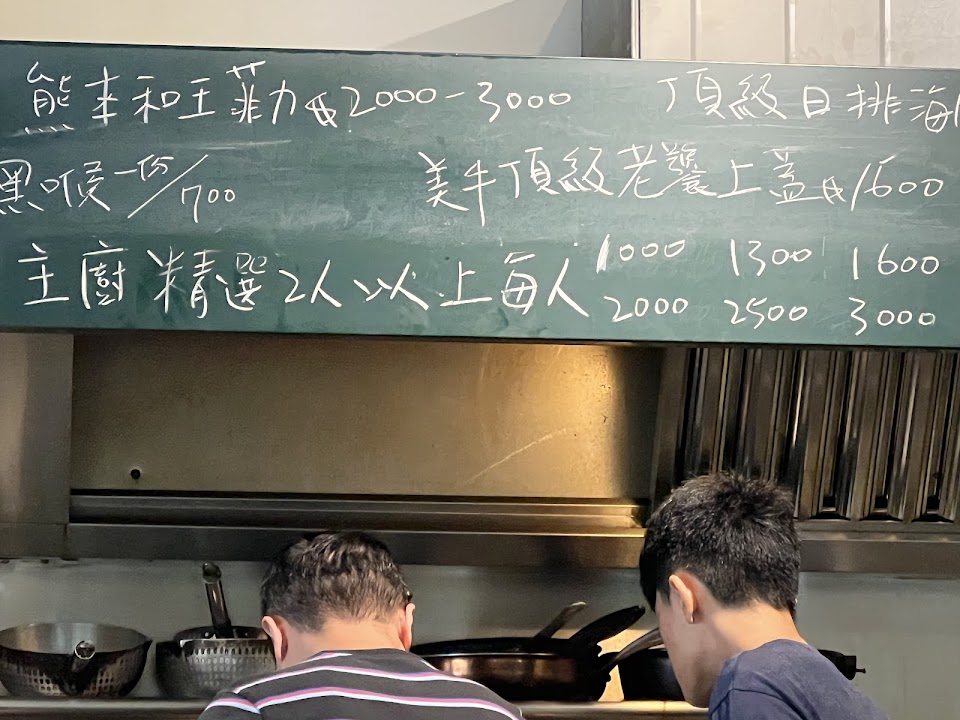 熊本和王菲力 2000-3000 頂級日排海
黑喉一份/700 美牛頂級老饕上蓋 1600
主廚精選 2人以上每人 1000 1300 1600
2000 2500 3000